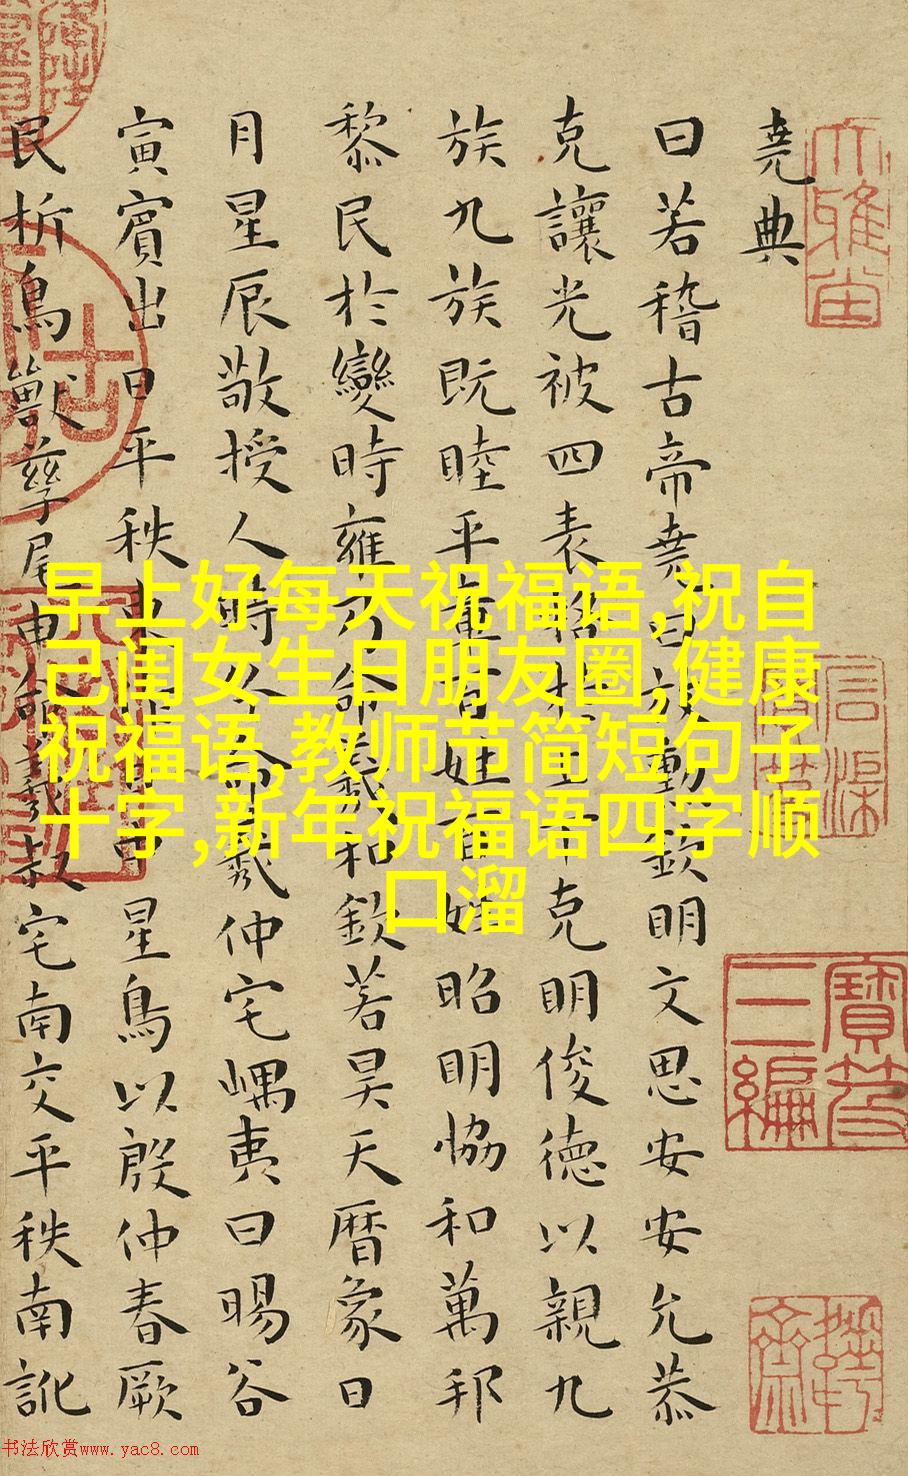 堯典
曰若稽古帝堯曰放勳欽明文思安安允恭
克讓光被四表格于上下克明俊德以親九
族九族既睦平章百姓百姓昭明恊和萬邦
黎民於變時雍乃命羲和欽若昊天曆象日
月星辰敬授人時分命羲仲宅嵎夷曰暘谷
寅賓出日平秩東作日中星鳥以殷仲春厥
民析鳥獸孳尾申命羲叔宅南交平秩南訛
早上好每天祝福语,祝自
己闺女生日朋友圈,健康
祝福语,教师节简短句子
十字,新年祝福语四字顺
口溜
寶笈
三編
书法欣赏www.yac8.com